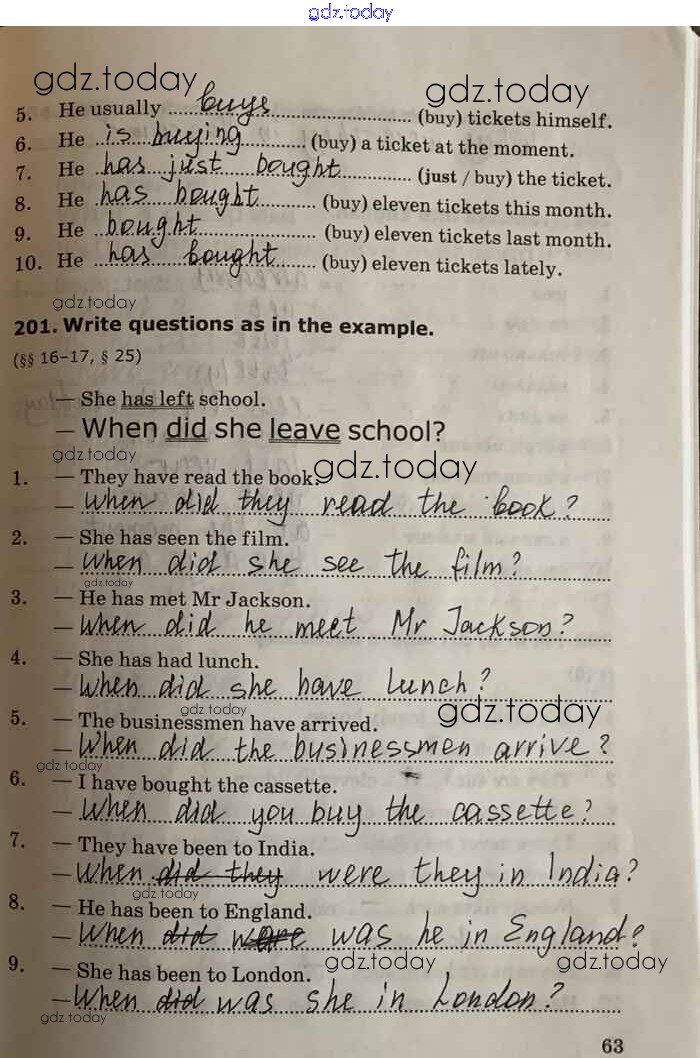 gdz.today
gdz.today gdz.today
5. He usually ... buys ... (buy) tickets himself.
6. He ... is buying ... (buy) a ticket at the moment.
7. He ... has just bought ... (just / buy) the ticket.
8. He ... has bought ... (buy) eleven tickets this month.
9. He ... bought ... (buy) eleven tickets last month.
10. He ... has bought ... (buy) eleven tickets lately.
gdz.today
201. Write questions as in the example.
(§§ 16–17, § 25)
— She has left school.
— When did she leave school?
gdz.today gdz.today
1. — They have read the book.
— When did they read the book?
2. — She has seen the film.
— When did she see the film?
gdz.today
3. — He has met Mr Jackson.
— When did he meet Mr Jackson?
4. — She has had lunch.
— When did she have lunch?
gdz.today gdz.today
5. — The businessmen have arrived.
— When did the businessmen arrive?
gdz.today
6. — I have bought the cassette.
— When did you buy the cassette?
7. — They have been to India.
— When did they were they in India?
gdz.today
8. — He has been to England.
— When did were was he in England?
gdz.today gdz.today
9. — She has been to London.
— When did was she in London?
gdz.today
63